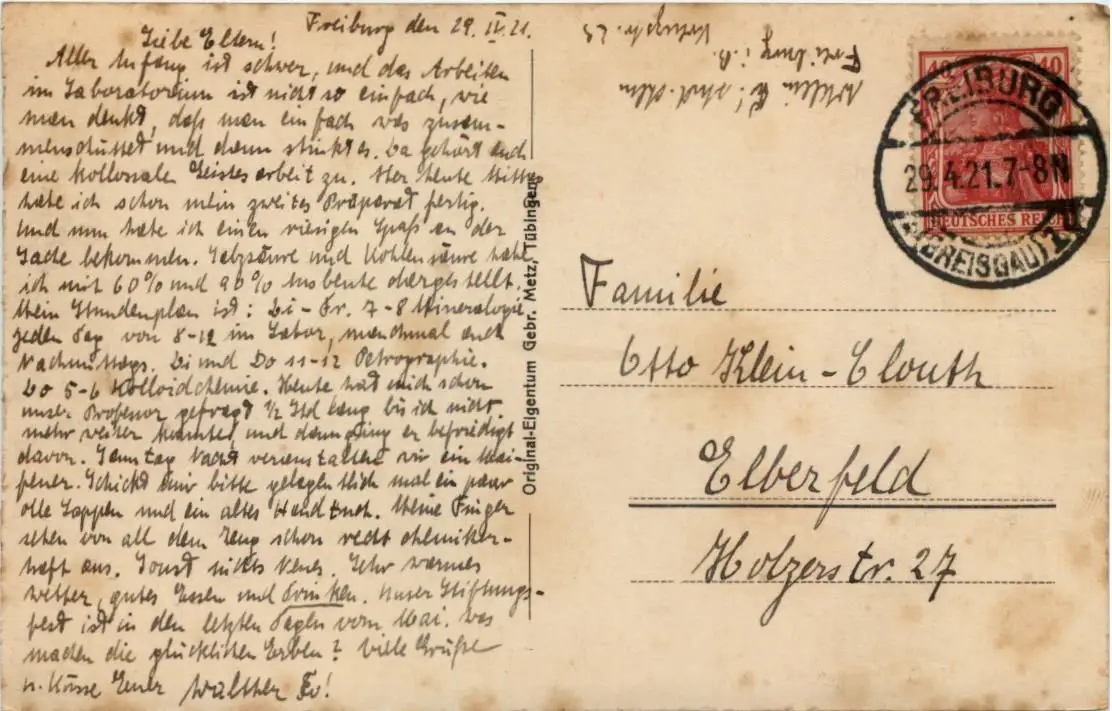 Freiburg den 29. IV. 21.
Liebe Eltern!
Aller Anfang ist schwer, und das Arbeiten
im Laboratorium ist nicht so einfach, wie
man denkt, daß man einfach was zusam-
menschüttet und dann stinkt es. Da gehört auch
eine kollossale Geistesarbeit zu. Aber heute Mittag
habe ich schon mein zweites Präparat fertig.
Und nun habe ich einen riesigen Spaß an der
Sache bekommen. Salzsäure und Kohlensäure habe
ich mit 60% und 90% Ausbeute dargestellt.
Mein Stundenplan ist: Di - Fr. 7-8 Mineralogie
jeden Tag von 8-12 im Labor, manchmal auch
Nachmittags. Di und Do 11-12 Petrographie.
Do 5-6 Kolloidchemie. Heute hat mich schon
unser Professor gefragt 1/2 Std lang bis ich nicht
mehr weiter konnte, und dann ging er befriedigt
davon. Sonntag Nacht veranstalten wir ein Mai-
feuer. Schickt mir bitte gelegentlich mal ein paar
olle Lappen und ein altes Handtuch. Meine Finger
sehen von all dem Zeug schon recht chemiker-
haft aus. Sonst nichts Neues. Sehr warmes
Wetter, gutes Essen und Trinken. Unser Stiftungs-
fest ist in den letzten Tagen vom Mai. Was
machen die glücklichen Erben? Viele Grüße
u. Küsse Euer Walther
Original-Eigentum Gebr. Metz, Tübingen
W. Klein
Freiburg i. B.
40 40
DEUTSCHES REICH
FREIBURG
29.4.21.7-8N
(BREISGAU)
Familie
Otto Klein-Clouth
Elberfeld
Holzerstr. 27